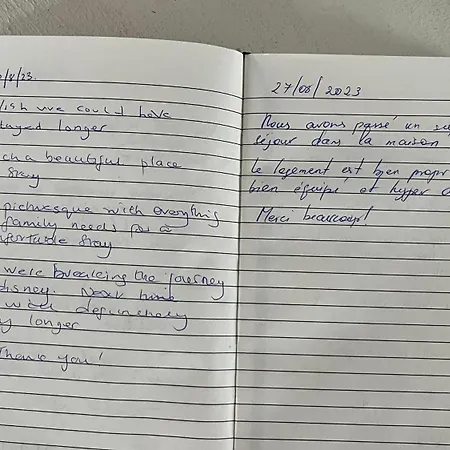 /8/23.
ish we could have
tayed longer
ch a beautiful place
Stay
picturesque with everything
family needs for a
mfortable Stay
were breaking the journey
disney. Next time
will definitely
y longer
Thank you!
27/08/2023
Nous avons passé un su
séjour dans la maison
Le logement est bien propr
bien équipé et hyper
Merci beaucoup!